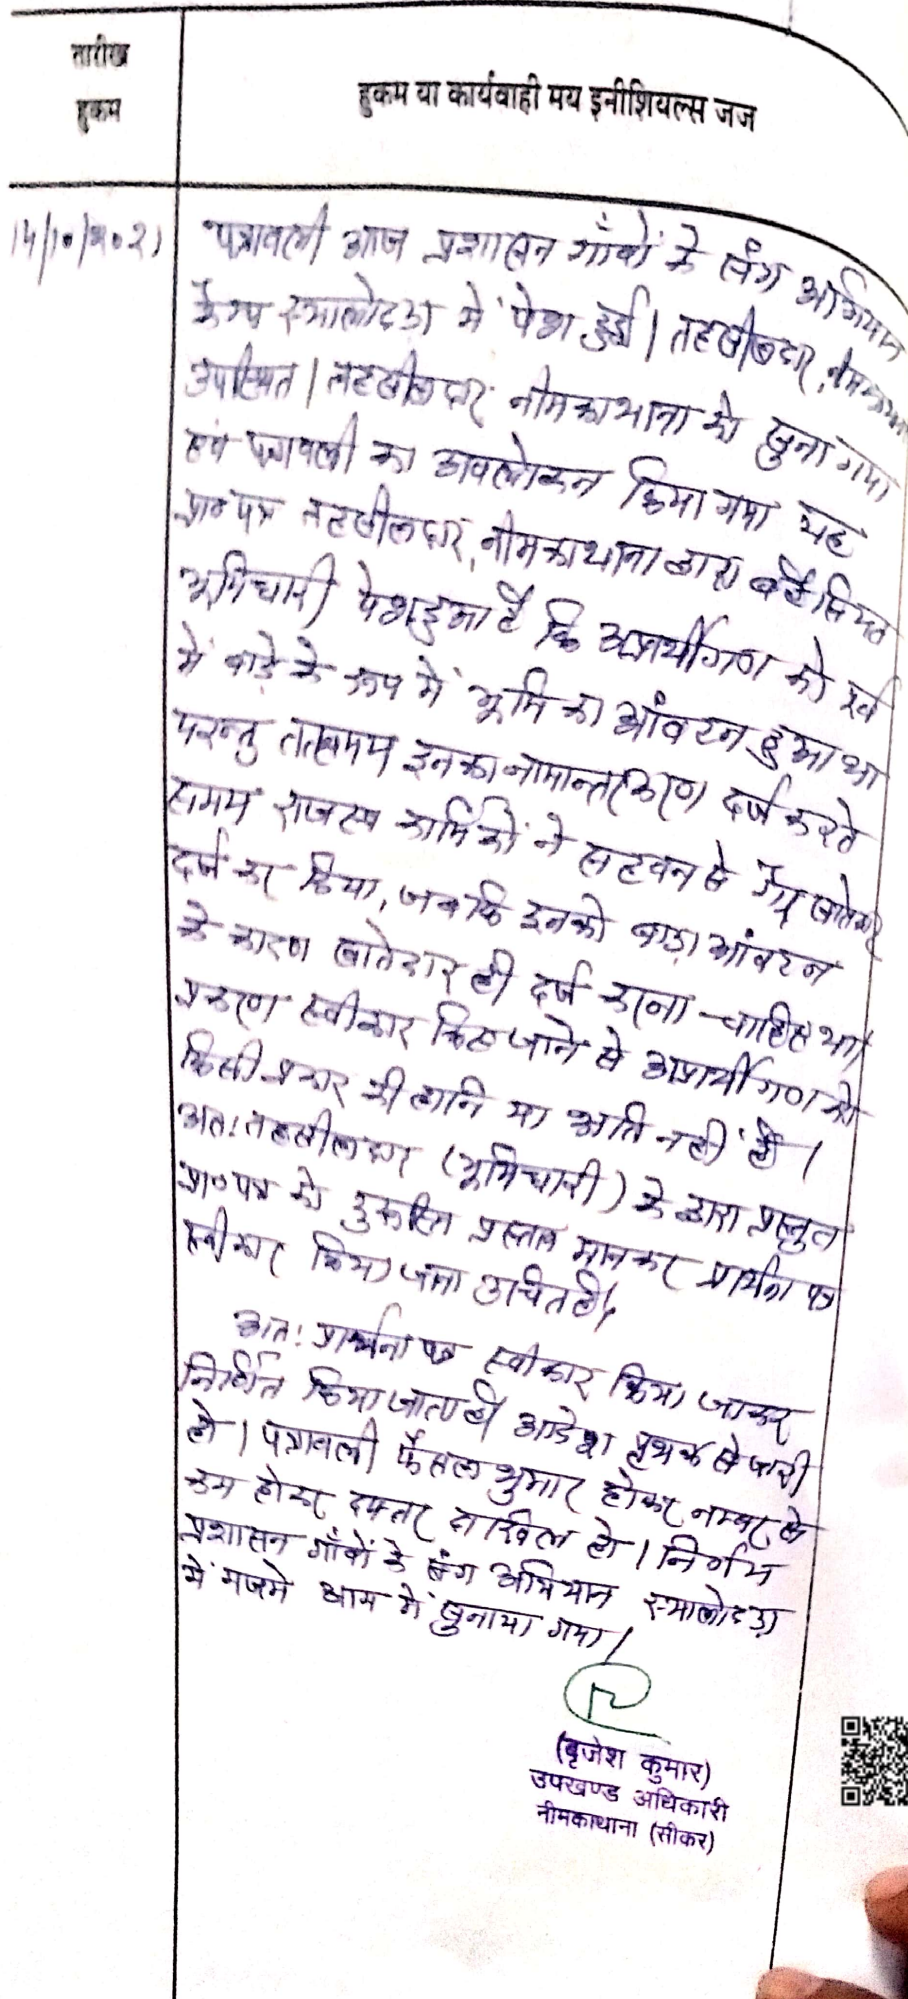 तारीख
हुकम
हुकम या कार्यवाही मय इनीशियल्स जज
14/10/2021
पत्रावली आज प्रशासन गाँवों के संग अभियान
कैम्प स्यालोदड़ा में पेश हुई। तहसीलदार, नीमकाथाना
उपस्थित। तहसीलदार, नीमकाथाना को सुना गया
एवं पत्रावली का अवलोकन किया गया यह
प्रा० पत्र तहसीलदार, नीमकाथाना द्वारा बहैसियत
भूमिधारी पेश हुआ है कि अप्रार्थीगण को पूर्व
में बाड़े के रूप में भूमि का आंवटन हुआ था
परन्तु तत्समय इनका नामान्तरकरण दर्ज करते
समय राजस्व कार्मिकों ने सहवन से गैर खातेदार
दर्ज कर दिया, जबकि इनको बाड़ा आंवटन
के कारण खातेदार ही दर्ज करना चाहिए था।
प्रकरण स्वीकार किए जाने से अप्रार्थीगण को
किसी प्रकार की हानि या क्षति नही है।
अत: तहसीलदार (भूमिधारी) के द्वारा प्रस्तुत
प्रा० पत्र को मानकर प्रार्थना पत्र
स्वीकार किया जाना उचित है।
अत: प्रार्थना पत्र स्वीकार किया जाकर
निर्णित किया जाता है। आदेश पृथक से जारी
हो। पत्रावली फैसल शुमार होकर नम्बर से
कम होकर दफ्तर दाखिल हो। निर्णय
प्रशासन गाँवों के संग अभियान स्यालोदड़ा
में मजमे आम में सुनाया गया।
(बृजेश कुमार)
उपखण्ड अधिकारी
नीमकाथाना (सीकर)